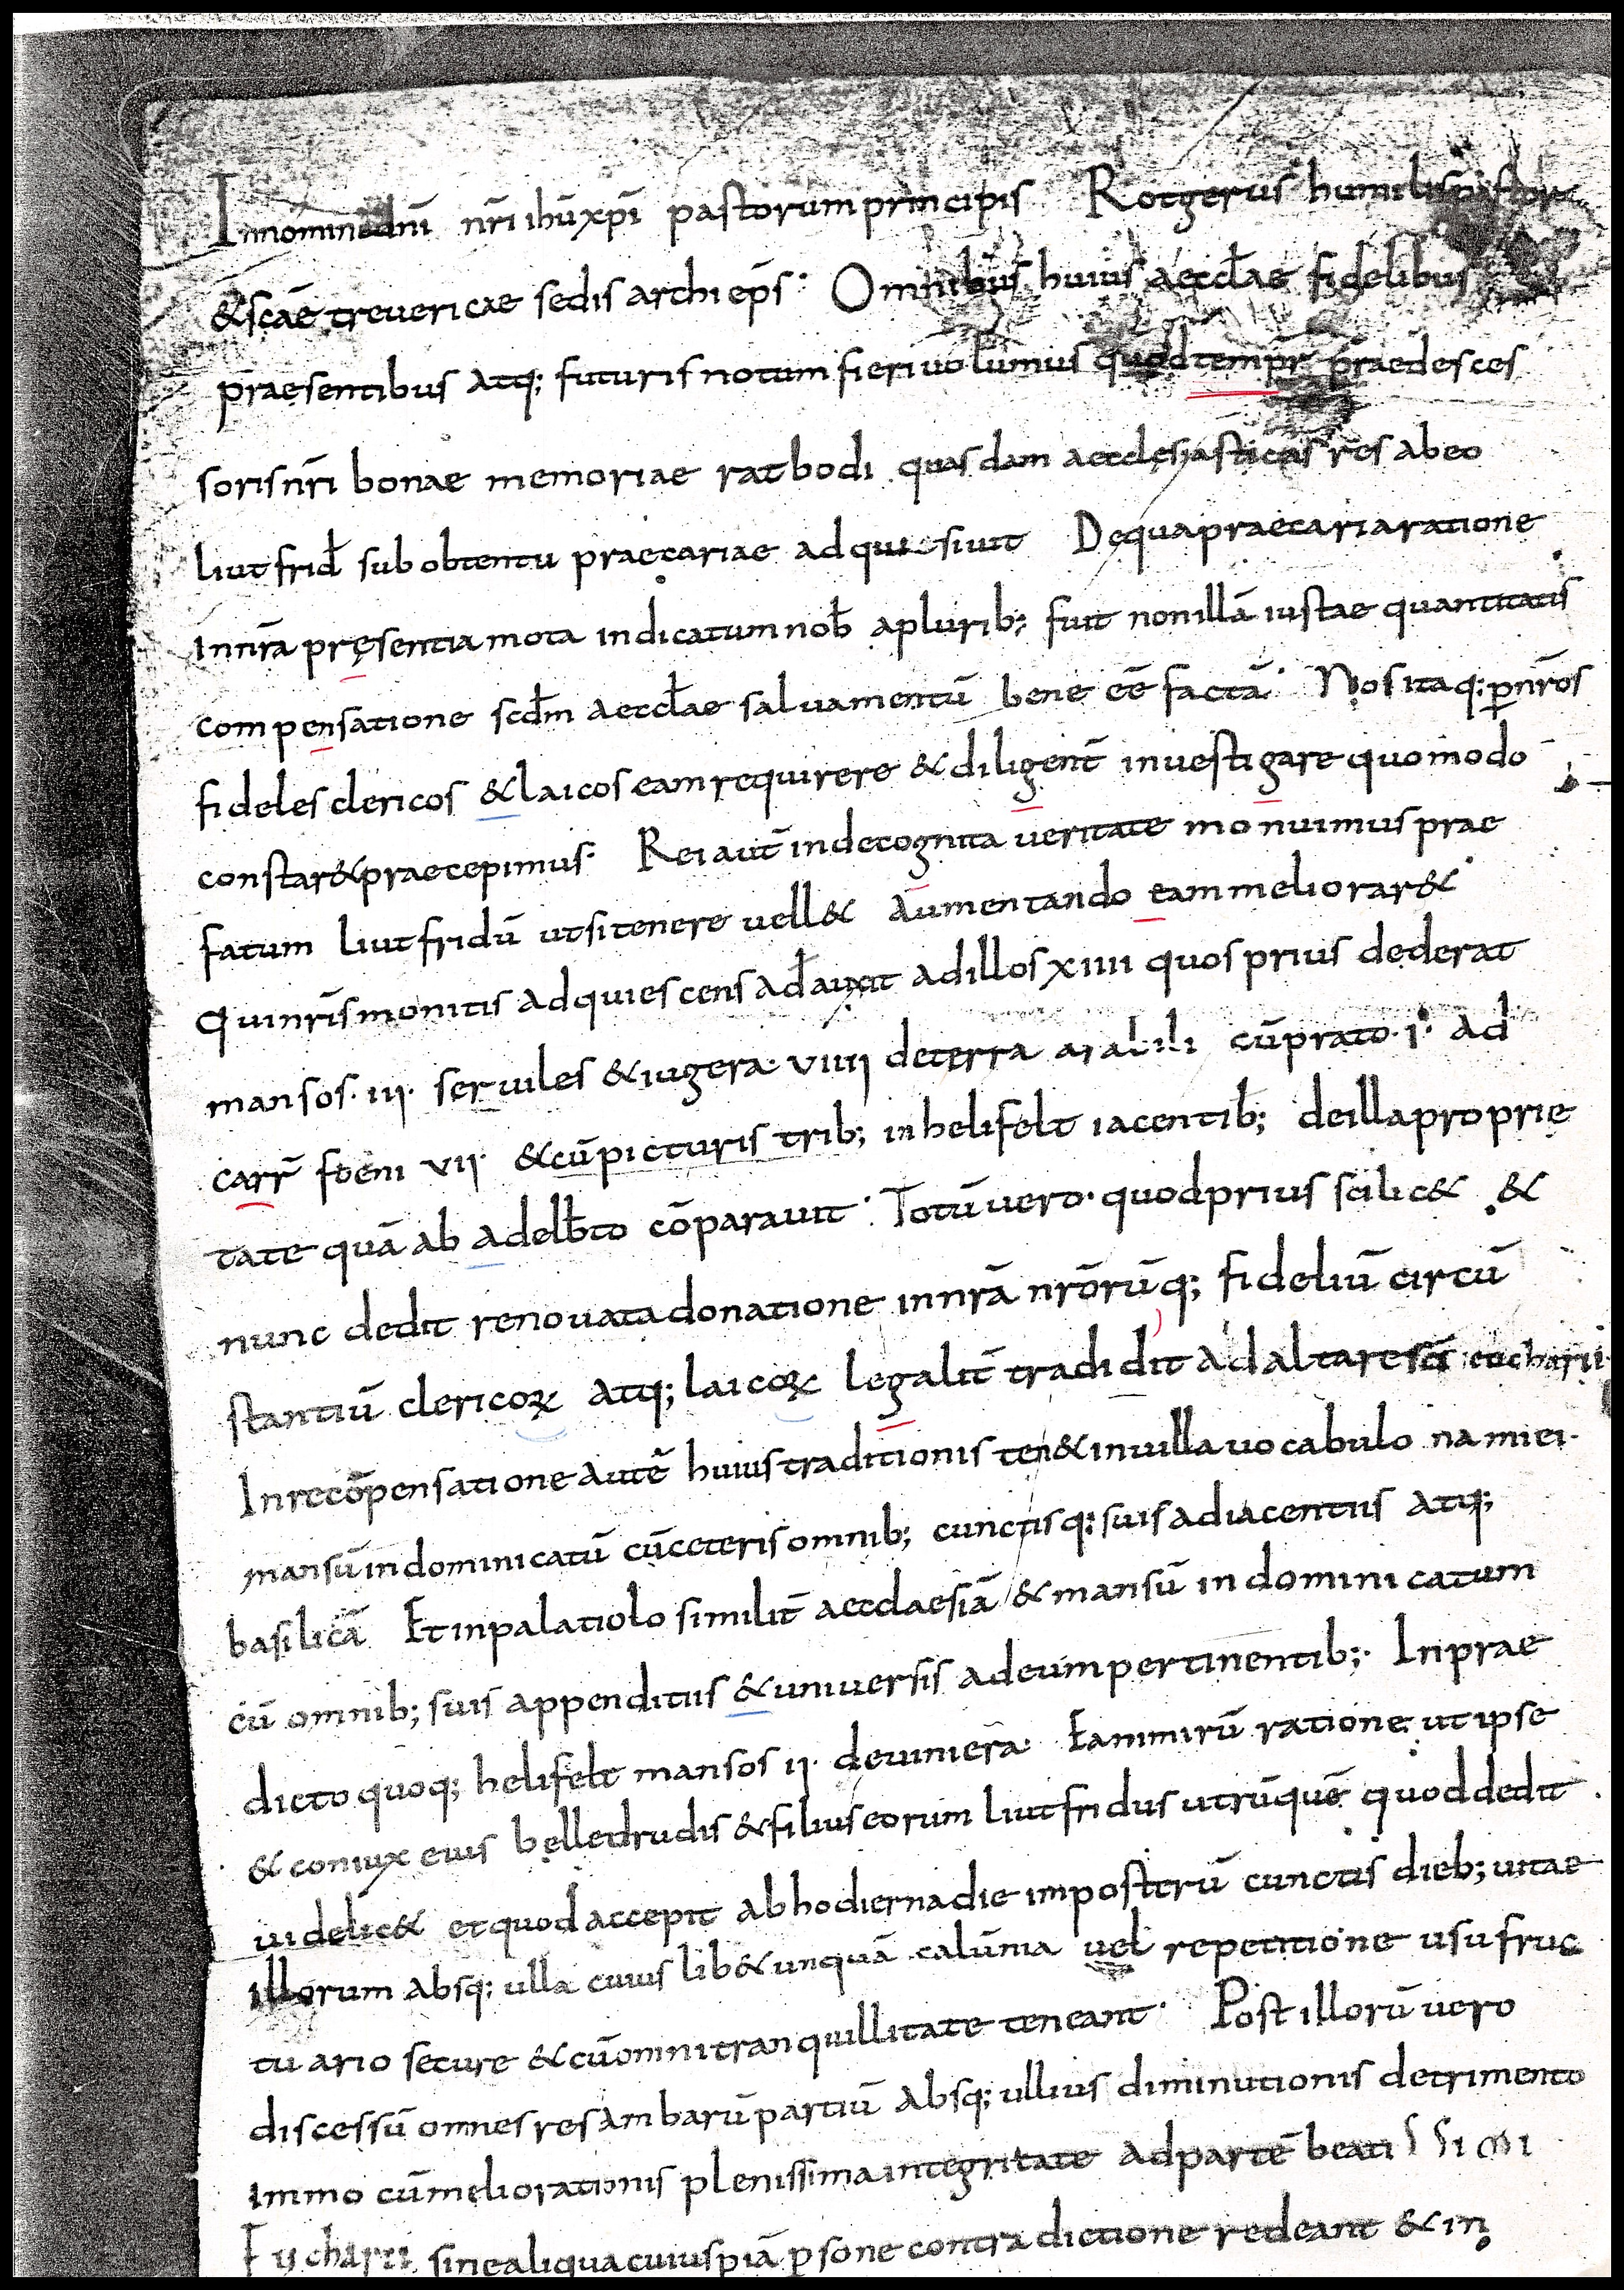 In nomine dn̄i nr̄i ihū xp̄i pastorum principis Rotgerus humilis pastor
& sc̄ae trevericae sedis archiep̄s· Omnibus huius aeccl̄ae fidelibus
praesentibus atq; futuris notum fieri volumus quod tempr̄ praedeces
soris nr̄i bonae memoriae ratbodi quasdam aecclesiasticas res ab eo
liutfrid̄ sub obtentu praecariae adquisivit De qua praecaria ratione
In nr̄a pręsentia mota indicatum nob̄ a plurib; fuit non illā iustae quantitatis
compensatione scd̄m aeccl̄ae salvamentū bene eē factā· Nos itaq; p̲ nr̄os
fideles clericos & laicos eam requirere & diligent̄ investigare quomodo
constar& praecepimus· Rei aut̄ inde cognita veritate monuimus prae
fatum liutfridū ut si tenere vell& aūmentando eam meliorar&
Qui nr̄is monitis adquiescens ad̄auxit ad illos xiiii quos prius dederat
mansos· iii· serviles & iugera· viiii de terra arabili cū prato· i· ad
carr̄ foeni vii· & cū picturis trib; in helifelt iacentib; de illa proprie
tate quā ab adelb̄to cōparavit· Totū vero· quod prius scilic& &
nunc dedit renovata donatione in nr̄ā nr̄orūq; fideliū circū
stantiū clericoꝝ atq; laicoꝝ legalit̄ tradidit ad altare sc̄i eucharii·
In recōpensatione autē huius traditionis ten& in villa vocabulo namiei·
mansū indominicatū cū ceteris omnib; cunctisq; suis adiacentiis atq;
basilicā Et in palatiolo similit̄ aecclaesiā & mansū indominicatum
cū omnib; suis appenditiis & universis ad eum pertinentib;· In prae
dicto quoq; helifelt mansos ii· de vinier̄a· Ea nimirū ratione· ut ipse
& coniux eius belledrudis & filius eorum liutfridus utrūquē quod dedit
videlic& et quod accepit ab hodierna die imposterū cunctis dieb; vitae
illorum absq; ulla cuius lib& unquā calūmnia vel repetitione usufruc
tuario secure & cū omni tranquillitate teneant· Post illorū vero
discessū omnes res ambarū partiū absq; ullius diminutionis detrimento
immo cū meliorationis plenissima integritate ad partē beati
Eucharii sine aliqua cuiuspiā p̲sone contradictione redeant & in